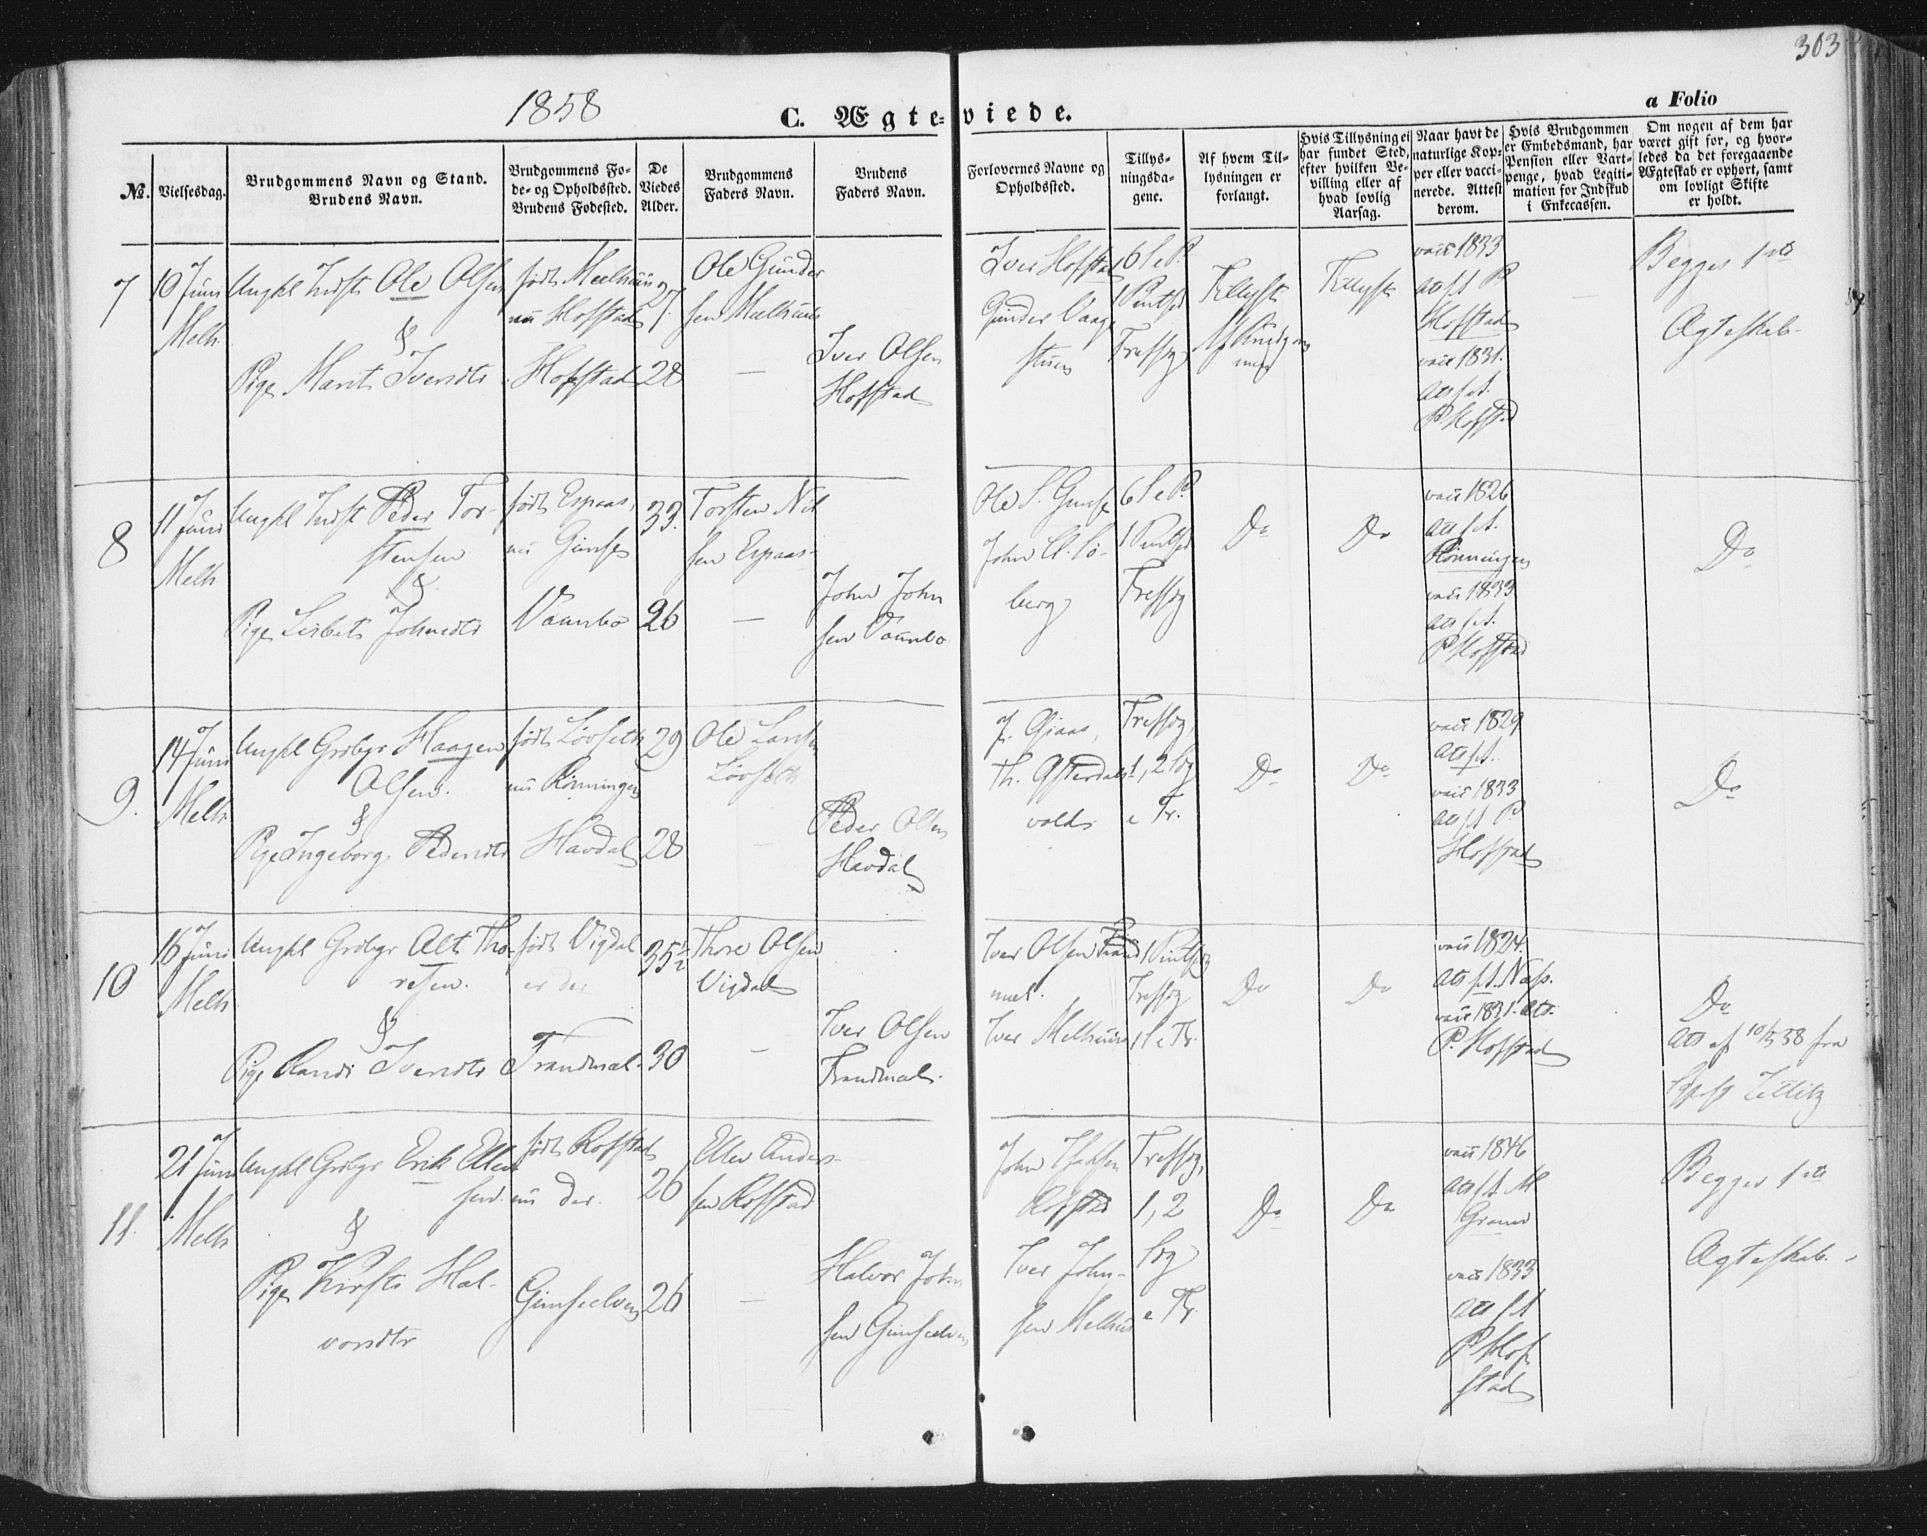 303
1858
C. Ægteviede.
a Folio
No.
Vielsesdag.
Brudgommens Navn og Stand.
Brudens Navn.
Brudgommens Fø-
de- og Opholdssted.
Brudens Fødested.
De
Viedes
Alder.
Brudgommens
Faders Navn.
Brudens
Faders Navn.
Forlovernes Navne og
Opholdssted.
Tillys-
ningsda-
gene.
Af hvem Til-
lysningen er
forlangt.
Hvis Tillysning ei
har fundet Sted,
efter hvilken Be-
villing eller af
hvad lovlig
Aarsag.
Naar havt de
naturlige Kop-
per eller vacci-
nerede. Attest
derom.
Hvis Brudgommen
er Embedsmand, har
Pension eller Vart-
penge, hvad Legiti-
mation for Indskud
i Enkecassen.
Om nogen af dem har
været gift før, og hvor-
ledes da det foregaaende
Ægteskab er ophørt, samt
om lovligt Skifte
er holdt.
7
10 Juni
Melh.
Ungkl Indst Ole Olsen
&
Pige Marit Iversdtr
født Meelhuus
nu Hofstad
Hofstad
27.
28
Ole Gunder
sen Meelhuus
Iver Olsen
Hofstad
Iver Hofstad
Gunder Vaage
stuen
6 S e P.
1 Pintsd
Trefsøg
Tillyst
Tillyst
vacc 1833
att s. A P
Hofstad
vacc 1831.
att s. A.
P Hofstad
Begges 1ste
Ægteskab
8
11 Juni
Melh
Ungkl Indst Peder Tor-
stensen
&
Pige Lisbet Johnsdtr
født Espaas,
nu Gimse
Vaunbo
33.
26
Torsten Nil
sen Espaas
John John
sen Vaunbo
Ole S. Gimse
John Cl. Sø-
berg
6 S e P.
1 Pintsd
Trefsøg
Do
Do
vacc 1826
att s. A.
Rønningen
vacc 1833
att s. A.
P Hofstad
Do
9.
14 Juni
Melh
Ungkl Grdbgr Haagen
Olsen.
&
Pige Ingeborg Pedersdtr
født Løvseth
nu Rønningen
Havdal
29
28
Ole Larsen
Løvseth
Peder Olsen
Havdal
J. Gjaas,
volds
Trefsøg,
1, 2 Søg
e Tr.
Do
Do
vacc 1829
att s. A.
vacc 1833
att s. A P
Hofstad
Do
10
16 Juni
Melh
Ungkl Grdbgr Alt Tho-
resen.
&
Pige Randi Iversdtr
født Vigdal
er der
Trandmal
35 1/2
30
Thore Olsen
Vigdal
Iver Olsen
Trandmal.
Iver Olsen Trand
mal.
Iver Melhuus
1 Pintsdg
Trefsøg
1 S e Tr.
Do
Do
vacc 1824.
att s. A.
vacc 1831. att.
P. Hofstad
Do
Att af 10/5 58 fra
11.
21 Juni
Melh
Ungkl Grdbgr Erik Ellev
sen.
&
Pige Kirsti Hal-
vorsdtr
født Rofstad
nu der.
Gimseelven
26
26
Ellev Anders-
sen Rofstad
Halvor John
sen Gimseelven
John
Rofstad
Iver John-
sen Melhuus
Trefsøg,
1, 2
Søg
e Tr
Do
Do
vacc 1846
att s. A. M
Gram
vacc 1833
att s. A
P Hof
stad
Begges 1ste
Ægteskab.